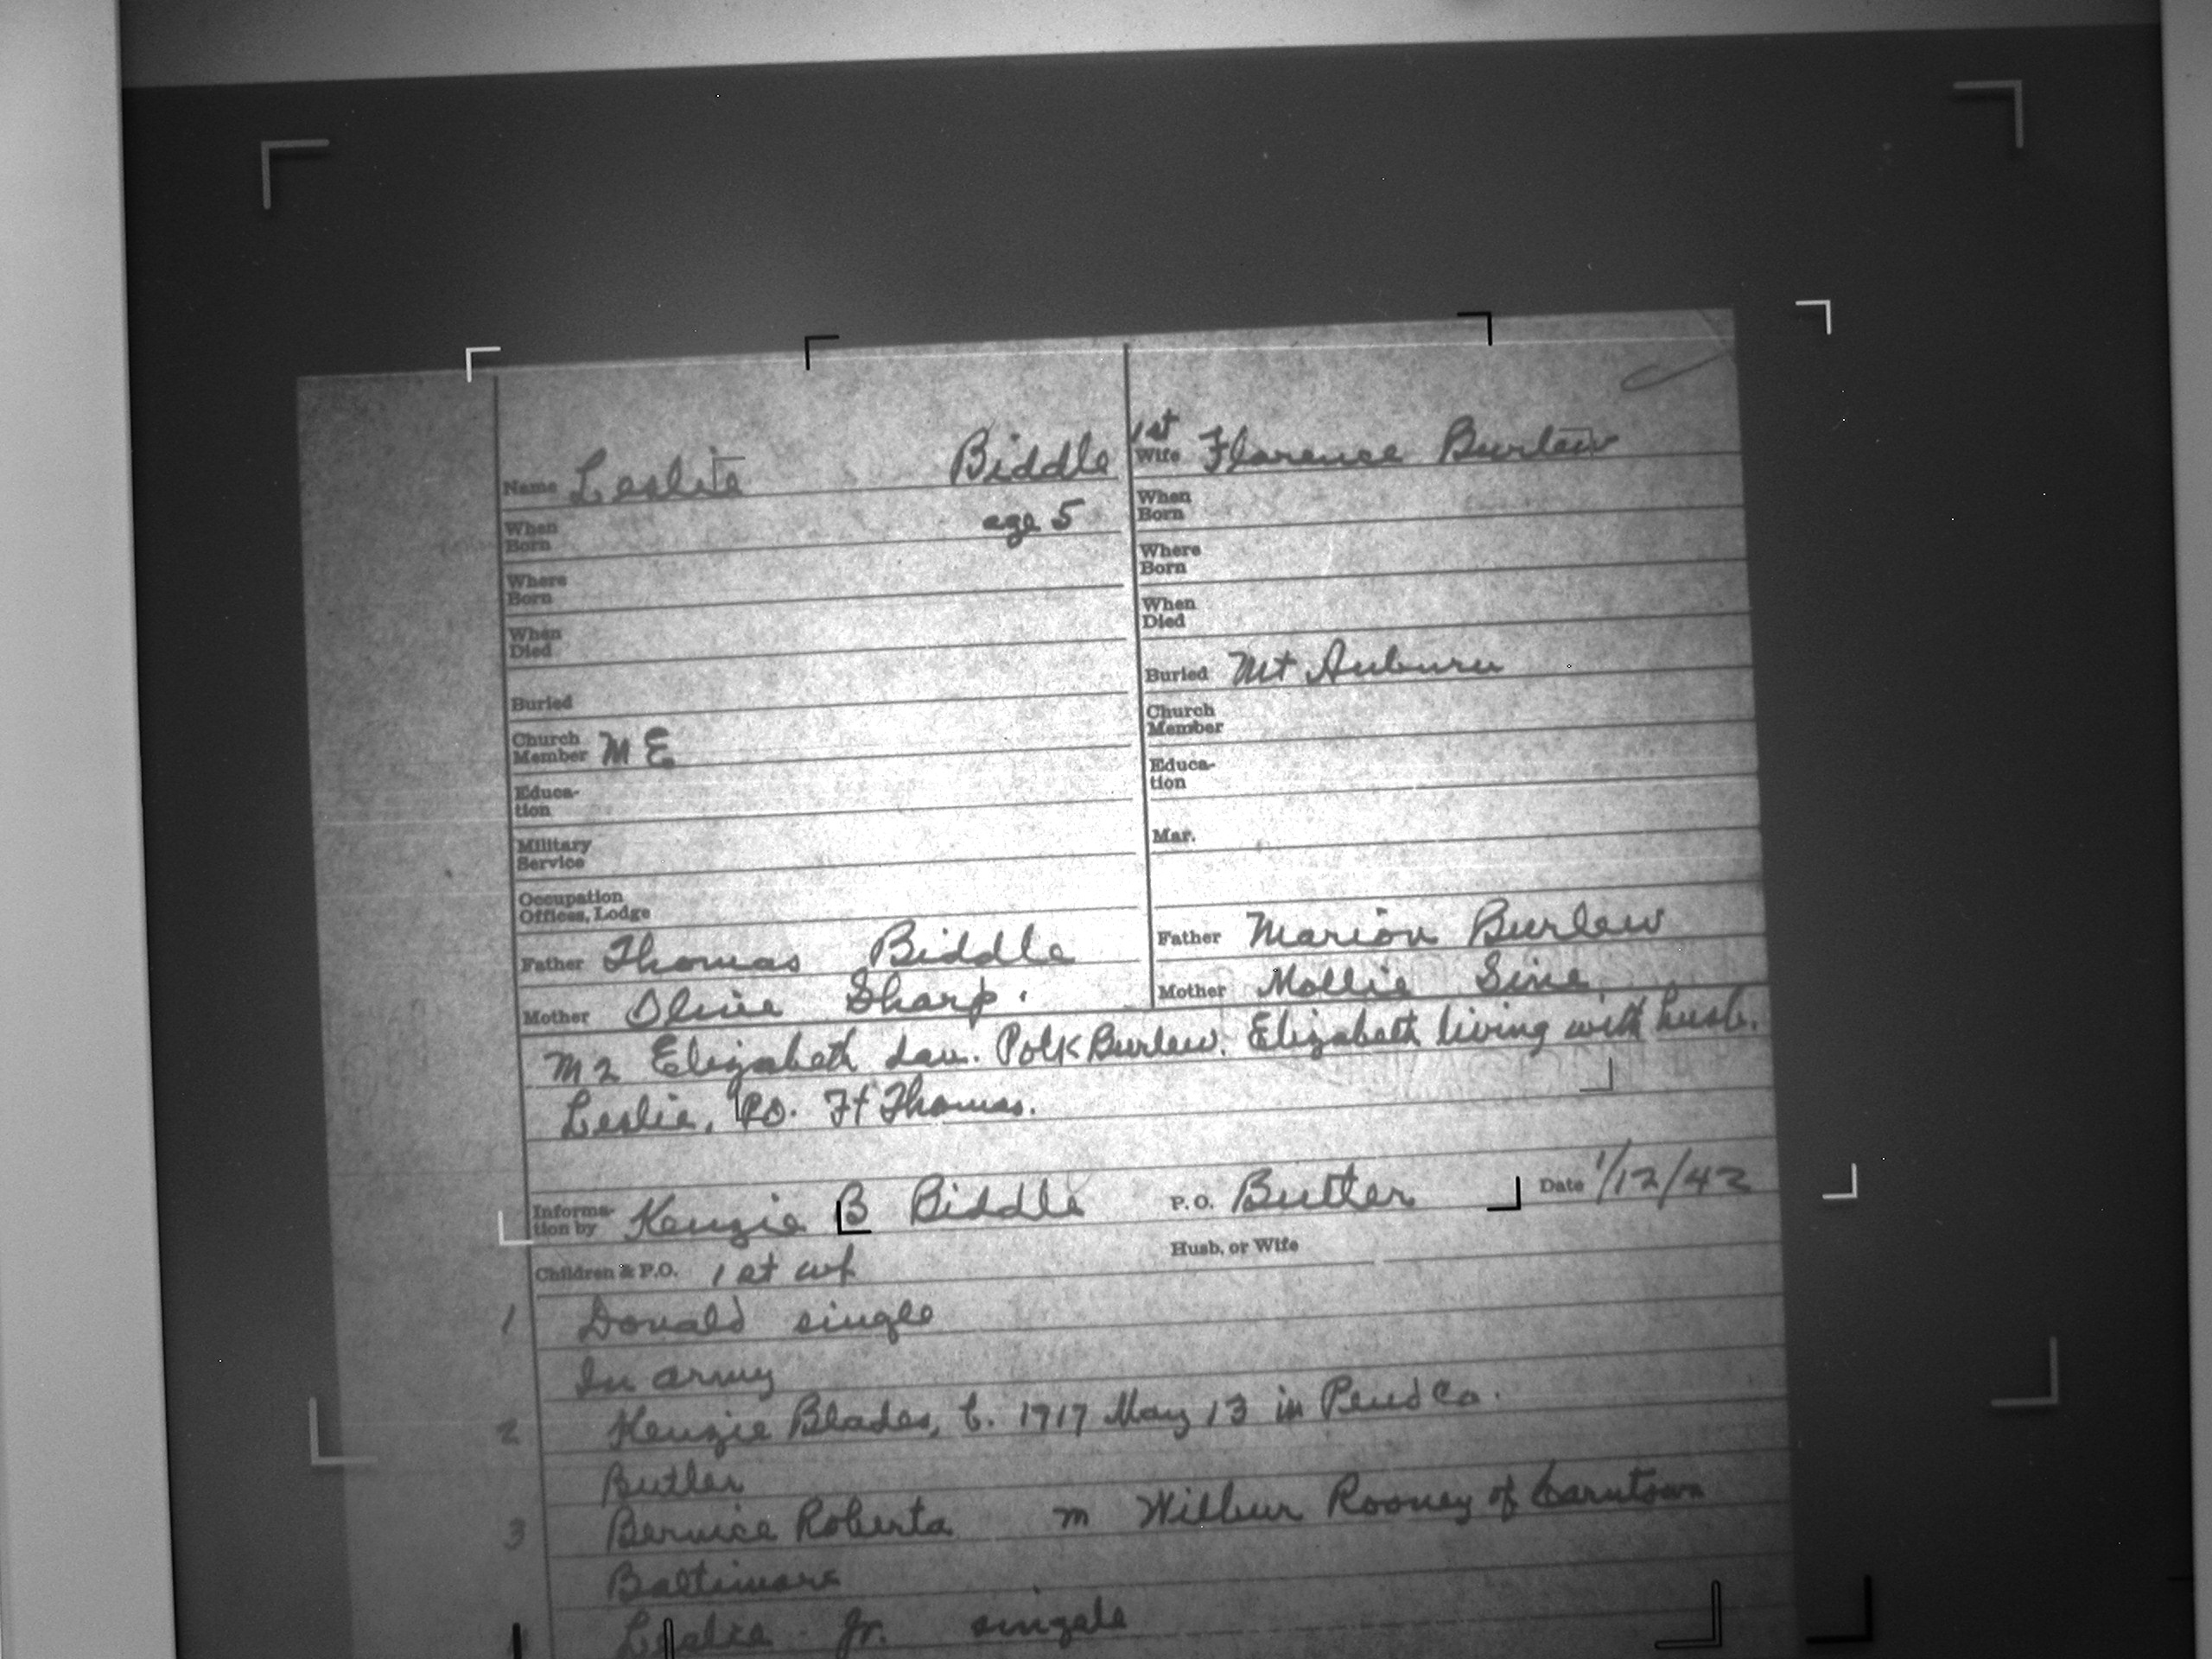 Name Leslie Biddle
When Born age 5
Where Born
When Died
Buried
Church Member M E
Educa-tion
Military Service
Occupation Offices, Lodge
Father Thomas Biddle
Mother Olive Sharp.
1st Wife Florence Burlew
When Born
Where Born
When Died
Buried Mt Auburn
Church Member
Educa-tion
Mar.
Father Marion Burlew
Mother Mollie Sine
M 2 Elizabeth dau. Polk Burlew. Elizabeth living with husb.
Leslie, PO. Ft Thomas.
Informa-tion by Kenzie B Biddle P.O. Butler Date 1/12/42
Children & P.O. 1st wf Husb. or Wife
1 Donald single
In army
2 Kenzie Blades, b. 1917 May 13 in Pend Co.
Butler
3 Bernice Roberta m Wilbur Rooney of Carntown
Baltimore
Leslie Jr. single